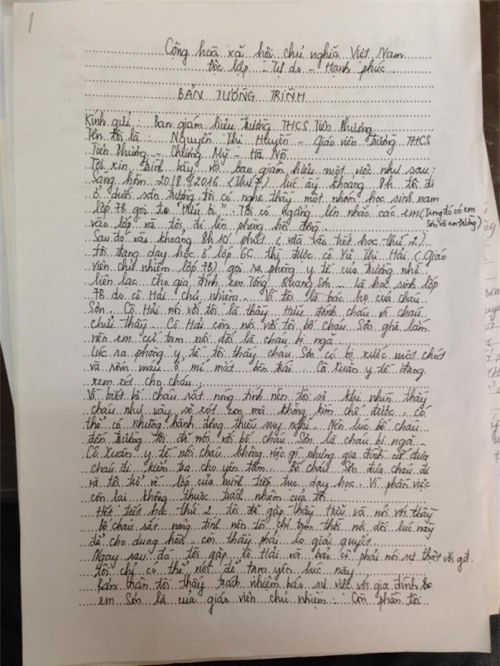 1
Cộng hoà xã hội chủ nghĩa Việt Nam
Độc lập - Tự do - Hạnh phúc
BẢN TƯỜNG TRÌNH
Kính gửi: Ban giám hiệu trường THCS Tiên Phương
Tên tôi là: Nguyễn Thị Huyền - Giáo viên trường THCS
Tiên Phương - Chương Mỹ - Hà Nội
Tôi xin trình bày với ban giám hiệu một việc như sau:
Sáng hôm 20/8/2016 (thứ 7) lúc ấy khoảng 8h tôi đi
ở dưới sân trường tôi có nghe thấy một nhóm học sinh nam
lớp 7B gọi to "Hiếu ơi". Tôi có ngẩng lên nhắc các em (Trong đó có em
Sơn, và em Dương)
vào lớp và tôi đi lên phòng hội đồng
Sau đó vào khoảng 8h10 phút (đã vào tiết học thứ 2)
tôi đang dạy học ở lớp 6C thì được cô Vũ Thị Hải (Giáo
viên chủ nhiệm lớp 7B) gọi ra phòng y tế của trường nhờ
liên lạc cho gia đình em Tống Quang Sơn - là học sinh lớp
7B do cô Hải chủ nhiệm. Vì tôi là bác họ của cháu
Sơn. Cô Hải nói với tôi là thầy Hiếu đánh cháu vì cháu
chửi thầy. Cô Hải còn nói với tôi bố cháu Sơn ghê lắm
nên em cứ tạm nói dối là cháu bị ngã.
Lúc ra phòng y tế tôi thấy cháu Sơn có bị xước một chút
và rớm máu ở mí mắt bên trái. Cô Xuân y tế đang
xem xét cho cháu.
Vì biết bố cháu rất nóng tính nên tôi sợ khi nhìn thấy
cháu như vậy sẽ xót con mà không kìm chế được, có
thể có những hành động thiếu suy nghĩ. Nên lúc bố cháu
đến trường tôi đã nói với bố cháu Sơn là cháu bị ngã.
Cô Xuân y tế nói cháu không việc gì nhưng gia đình cứ đưa
cháu đi kiểm tra cho yên tâm. Bố cháu Sơn đưa cháu đi
và tôi trở về lớp của mình tiếp tục dạy học. Vì phần việc
còn lại không thuộc trách nhiệm của tôi
Hết tiết học thứ 2 tôi đã gặp thầy Hiếu và nói với thầy
bố cháu rất nóng tính nên tôi chỉ tạm thời nói dối lúc này
để cho dung hoà còn thầy phải lo giải quyết.
Ngay sau đó tôi gặp cô Hải và bảo cô phải nói sự thật với gđ
tôi chỉ có thể nói để tạm yên lúc này
Bản thân tôi thấy trách nhiệm báo sự việc với gia đình
em Sơn là của giáo viên chủ nhiệm. Còn phần tôi